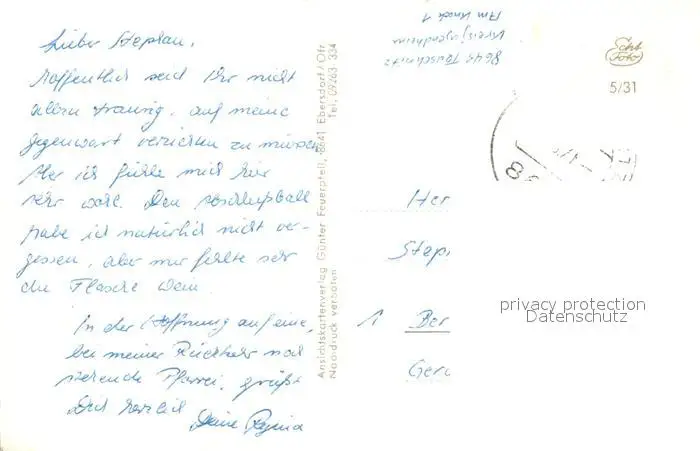 Lieber Stephan,
hoffentlich seid Ihr nicht
allzu traurig, auf meine
Gegenwart verzichten zu müssen
Aber ich fühle mich hier
sehr wohl. Den
habe ich natürlich nicht ver-
gessen, aber mir fehlte sehr
die Flasche Wein.
In der Hoffnung auf eine,
bei meiner Rückkehr noch
stehende Pfarrei, grüßt
Dich herzlich
Deine Regina
Ansichtskartenverlag Günter Feuerpfeil, 8641 Ebersdorf/Ofr
Nachdruck verboten Tel. 09263 334
8641 Teuschnitz
Kreisjugendheim
Am Knock 1
Echt
Foto
5/31
Her
Step
1 Ber
Gero
privacy protection
Datenschutz